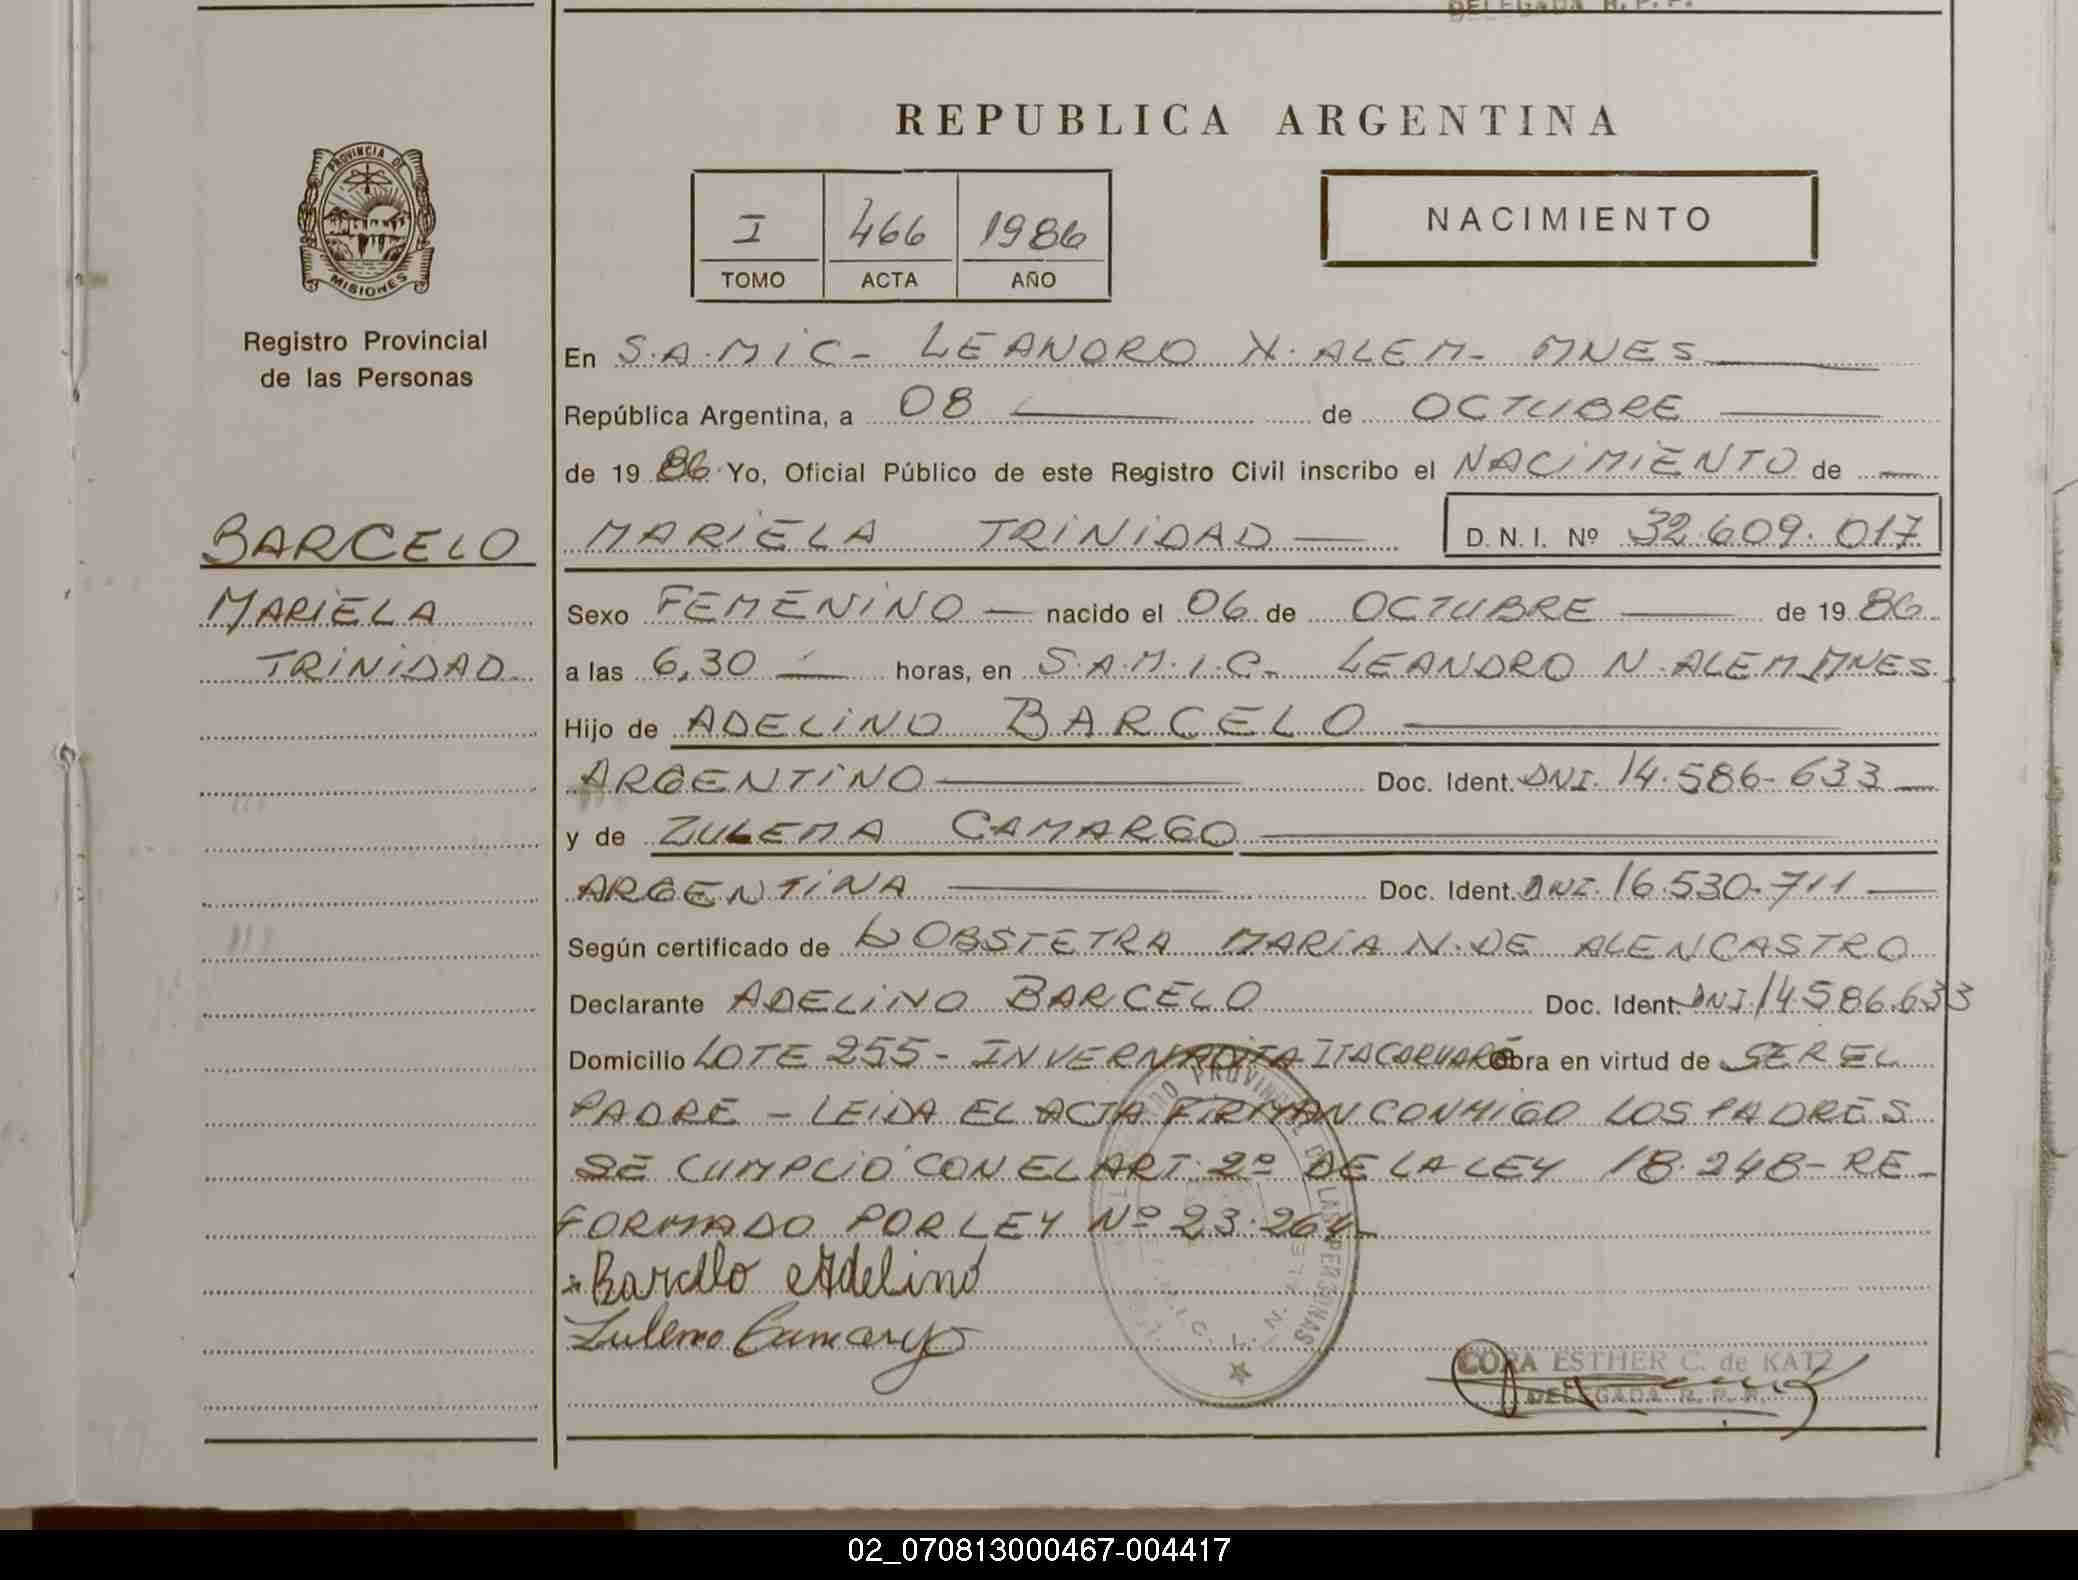 DELEGADA R. P. P.
REPUBLICA ARGENTINA
PROVINCIA DE
MISIONES
Registro Provincial
de las Personas
I 466 1986
TOMO ACTA AÑO
NACIMIENTO
En S.A.MIC- LEANDRO N. ALEM- MNES
República Argentina, a 08 de OCTUBRE
de 19 86 Yo, Oficial Público de este Registro Civil inscribo el NACIMIENTO de
BARCELO
MARIELA
TRINIDAD
MARIELA TRINIDAD D. N. I. Nº 32.609.017
Sexo FEMENINO nacido el 06 de OCTUBRE de 19 86
a las 6,30 horas, en S.A.M.I.C- LEANDRO N. ALEM MNES
Hijo de ADELINO BARCELO
ARGENTINO Doc. Ident. DNI. 14.586-633
y de ZULEMA CAMARGO
ARGENTINA Doc. Ident. DNI. 16.530-711
Según certificado de OBSTETRA MARIA N. DE ALENCASTRO
Declarante ADELINO BARCELO Doc. Ident. DNI. 14.586.633
Domicilio LOTE 255- INVERNADITA ITACARUARÉ Obra en virtud de SER EL
PADRE - LEIDA EL ACTA FIRMAN CONMIGO LOS PADRES
SE CUMPLIO CON EL ART. 2º DE LA LEY 18.248- RE-
FORMADO POR LEY Nº 23.264-
Barcelo Adelino
Zulema Camargo
PROVINCIAL DE LAS PERSONAS
CORA ESTHER C. de KATZ
DELEGADA R. P. P.
02_070813000467-004417